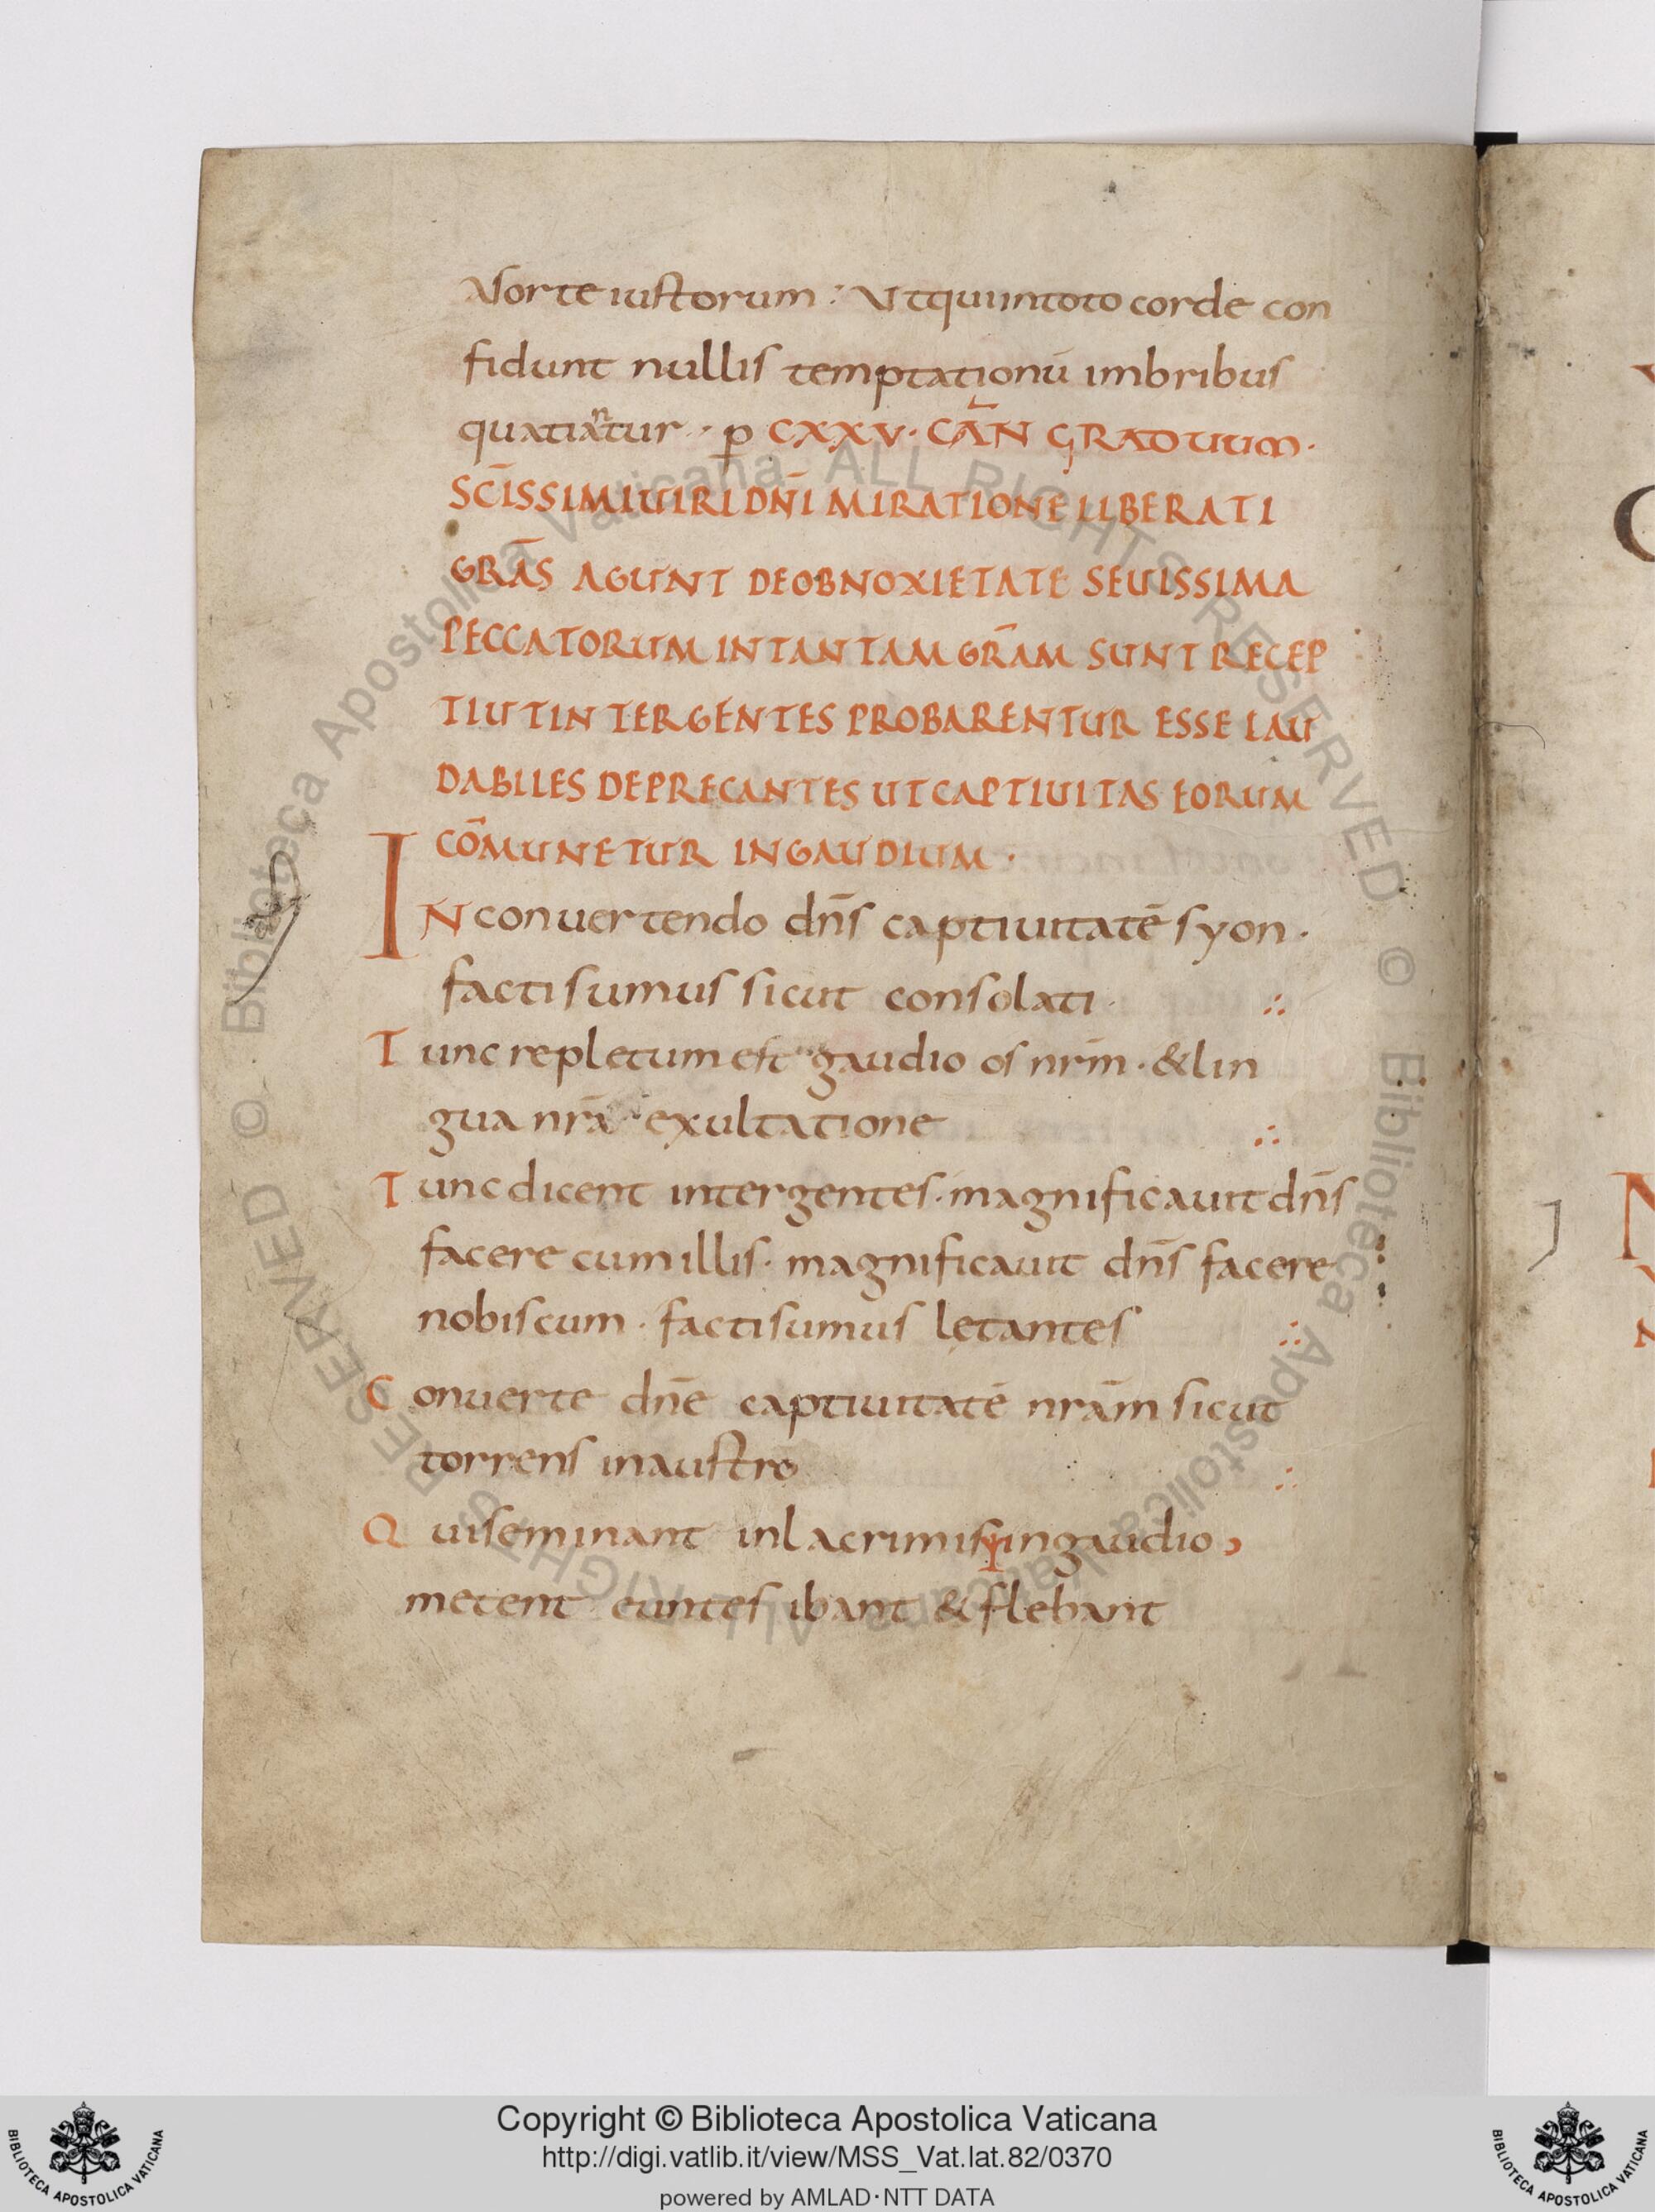 a sorte iustorum : Ut qui in toto corde con
fidunt nullis temptationū imbribus
quatiantur · p CXXV · CĀN GRADUUM ·
SCĪSSIMI UIRI DN̄I MIRATIONE LIBERATI
GRĀS AGUNT DE OBNOXIETATE SEUISSIMA
PECCATORUM IN TANTAM GRĀM SUNT RECEP
TI UT INTER GENTES PROBARENTUR ESSE LAU
DABILES DEPRECANTES UT CAPTIUITAS EORUM
CŌMUNETUR IN GAUDIUM ·
IN conuertendo dn̄s captiuitatē syon ·
facti sumus sicut consolati · ∴
Tunc repletum est gaudio os nrm̄ · & lin
gua nrā exultatione ∴
Tunc dicent inter gentes · magnificauit dn̄s
facere cum illis · magnificauit dn̄s facere
nobiscum · facti sumus lętantes ∴
Conuerte dn̄e captiuitatē nrām sicut
torrens in austro ∴
Qui seminant in lacrimis in gaudio
metent euntes ibant & flebant
Copyright © Biblioteca Apostolica Vaticana
http://digi.vatlib.it/view/MSS_Vat.lat.82/0370
powered by AMLAD·NTT DATA
BIBLIOTECA APOSTOLICA VATICANA
BIBLIOTECA APOSTOLICA VATICANA
© Biblioteca Apostolica Vaticana ALL RIGHTS RESERVED
© Biblioteca Apostolica Vaticana ALL RIGHTS RESERVED